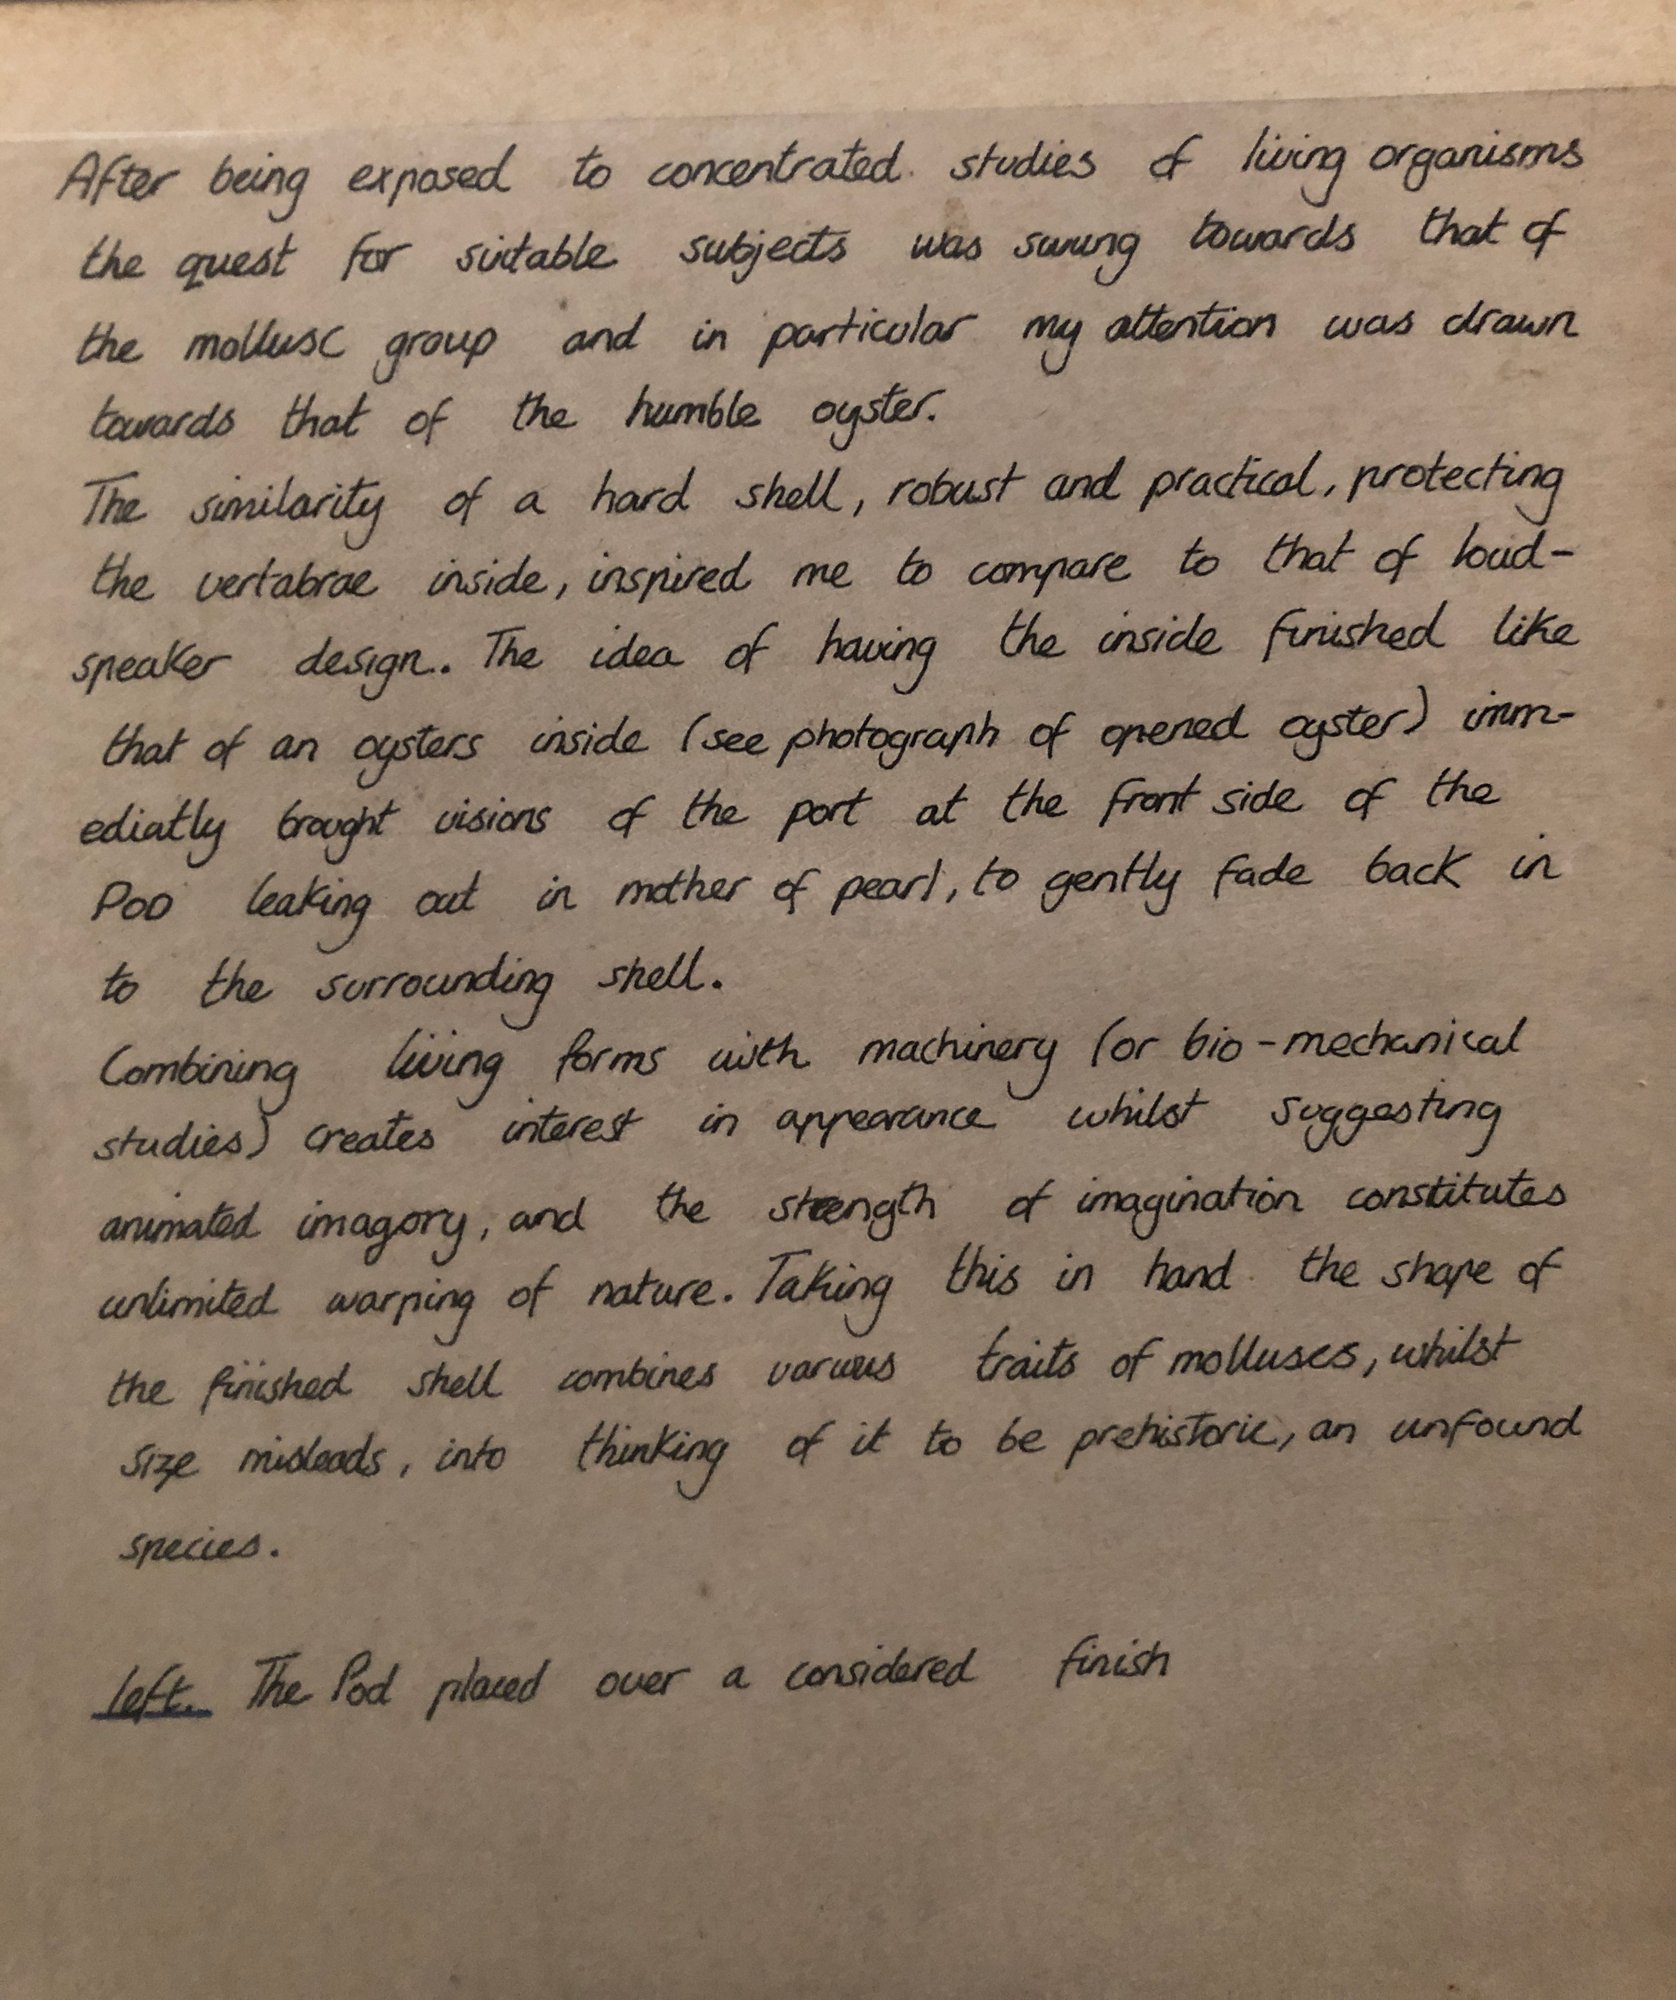 After being exposed to concentrated studies of living organisms
the quest for suitable subjects was swung towards that of
the mollusc group and in particular my attention was drawn
towards that of the humble oyster.
The similarity of a hard shell, robust and practical, protecting
the vertabrae inside, inspired me to compare to that of loud-
speaker design. The idea of having the inside finished like
that of an oysters inside (see photograph of opened oyster) imm-
ediatly brought visions of the port at the front side of the
POD leaking out in mother of pearl, to gently fade back in
to the surrounding shell.
Combining living forms with machinery (or bio-mechanical
studies) creates interest in appearance whilst suggesting
animated imagory, and the strength of imagination constitutes
unlimited warping of nature. Taking this in hand the shape of
the finished shell combines various traits of molluscs, whilst
size misleads, into thinking of it to be prehistoric, an unfound
species.
left. The Pod placed over a considered finish